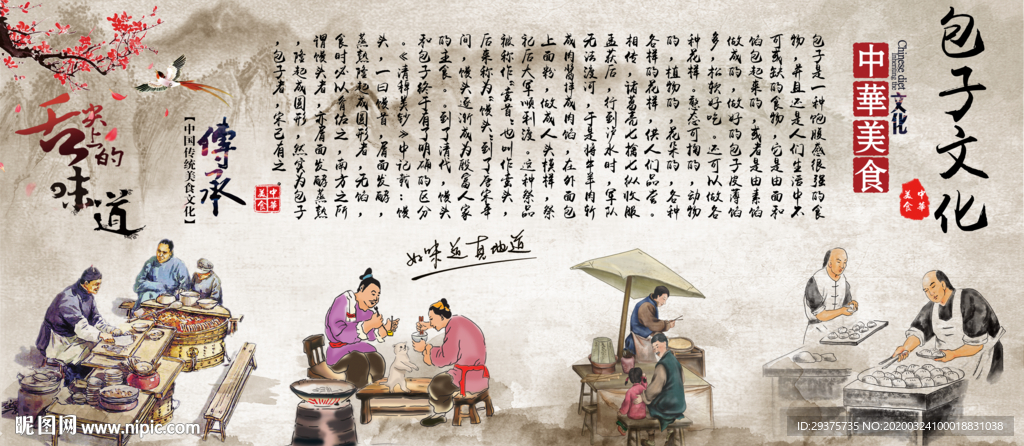 包子文化
中華美食
Chinese diet
文化
中華
美食
包子是一种饱腹感很强的食
物，并且还是人们生活中不
可或缺的食物，它是由面和
馅包起来的，或者是由素馅
做成的，做好的包子皮薄馅
多，松软好吃。还可以做各
种花样。憨态可掬的，动物
的，植物的，花朵的，各种
各样的花样，供人们品尝。
相传，诸葛亮七擒七纵收服
孟获后，行到泸水时，军队
无法渡河，于是将牛羊肉斩
成肉酱拌成肉馅，在外面包
上面粉，做成人头模样，祭
祀后大军顺利渡。这种祭品
被称作。蛮首。也叫作蛮头，
后来称为。馒头。到了唐宋年
间，馒头逐渐成为殷富人家
的主食。。到了清代，馒头
和包子终于有了明确的区分
。《清稗类钞》中记载：馒
头，一曰馒首，屑面发酵，
蒸熟隆起成圆形者，无馅，
食时必以肴佐之，南方之所
谓馒头者，亦屑面发酵蒸熟
，隆起成圆形，然实为包子
，包子者，宋已有之
中華
美食
傳承
【中国传统美食文化】
舌尖上的
味道
好味道真地道
昵图网 www.nipic.com
ID:29375735 NO:20200324100018831038